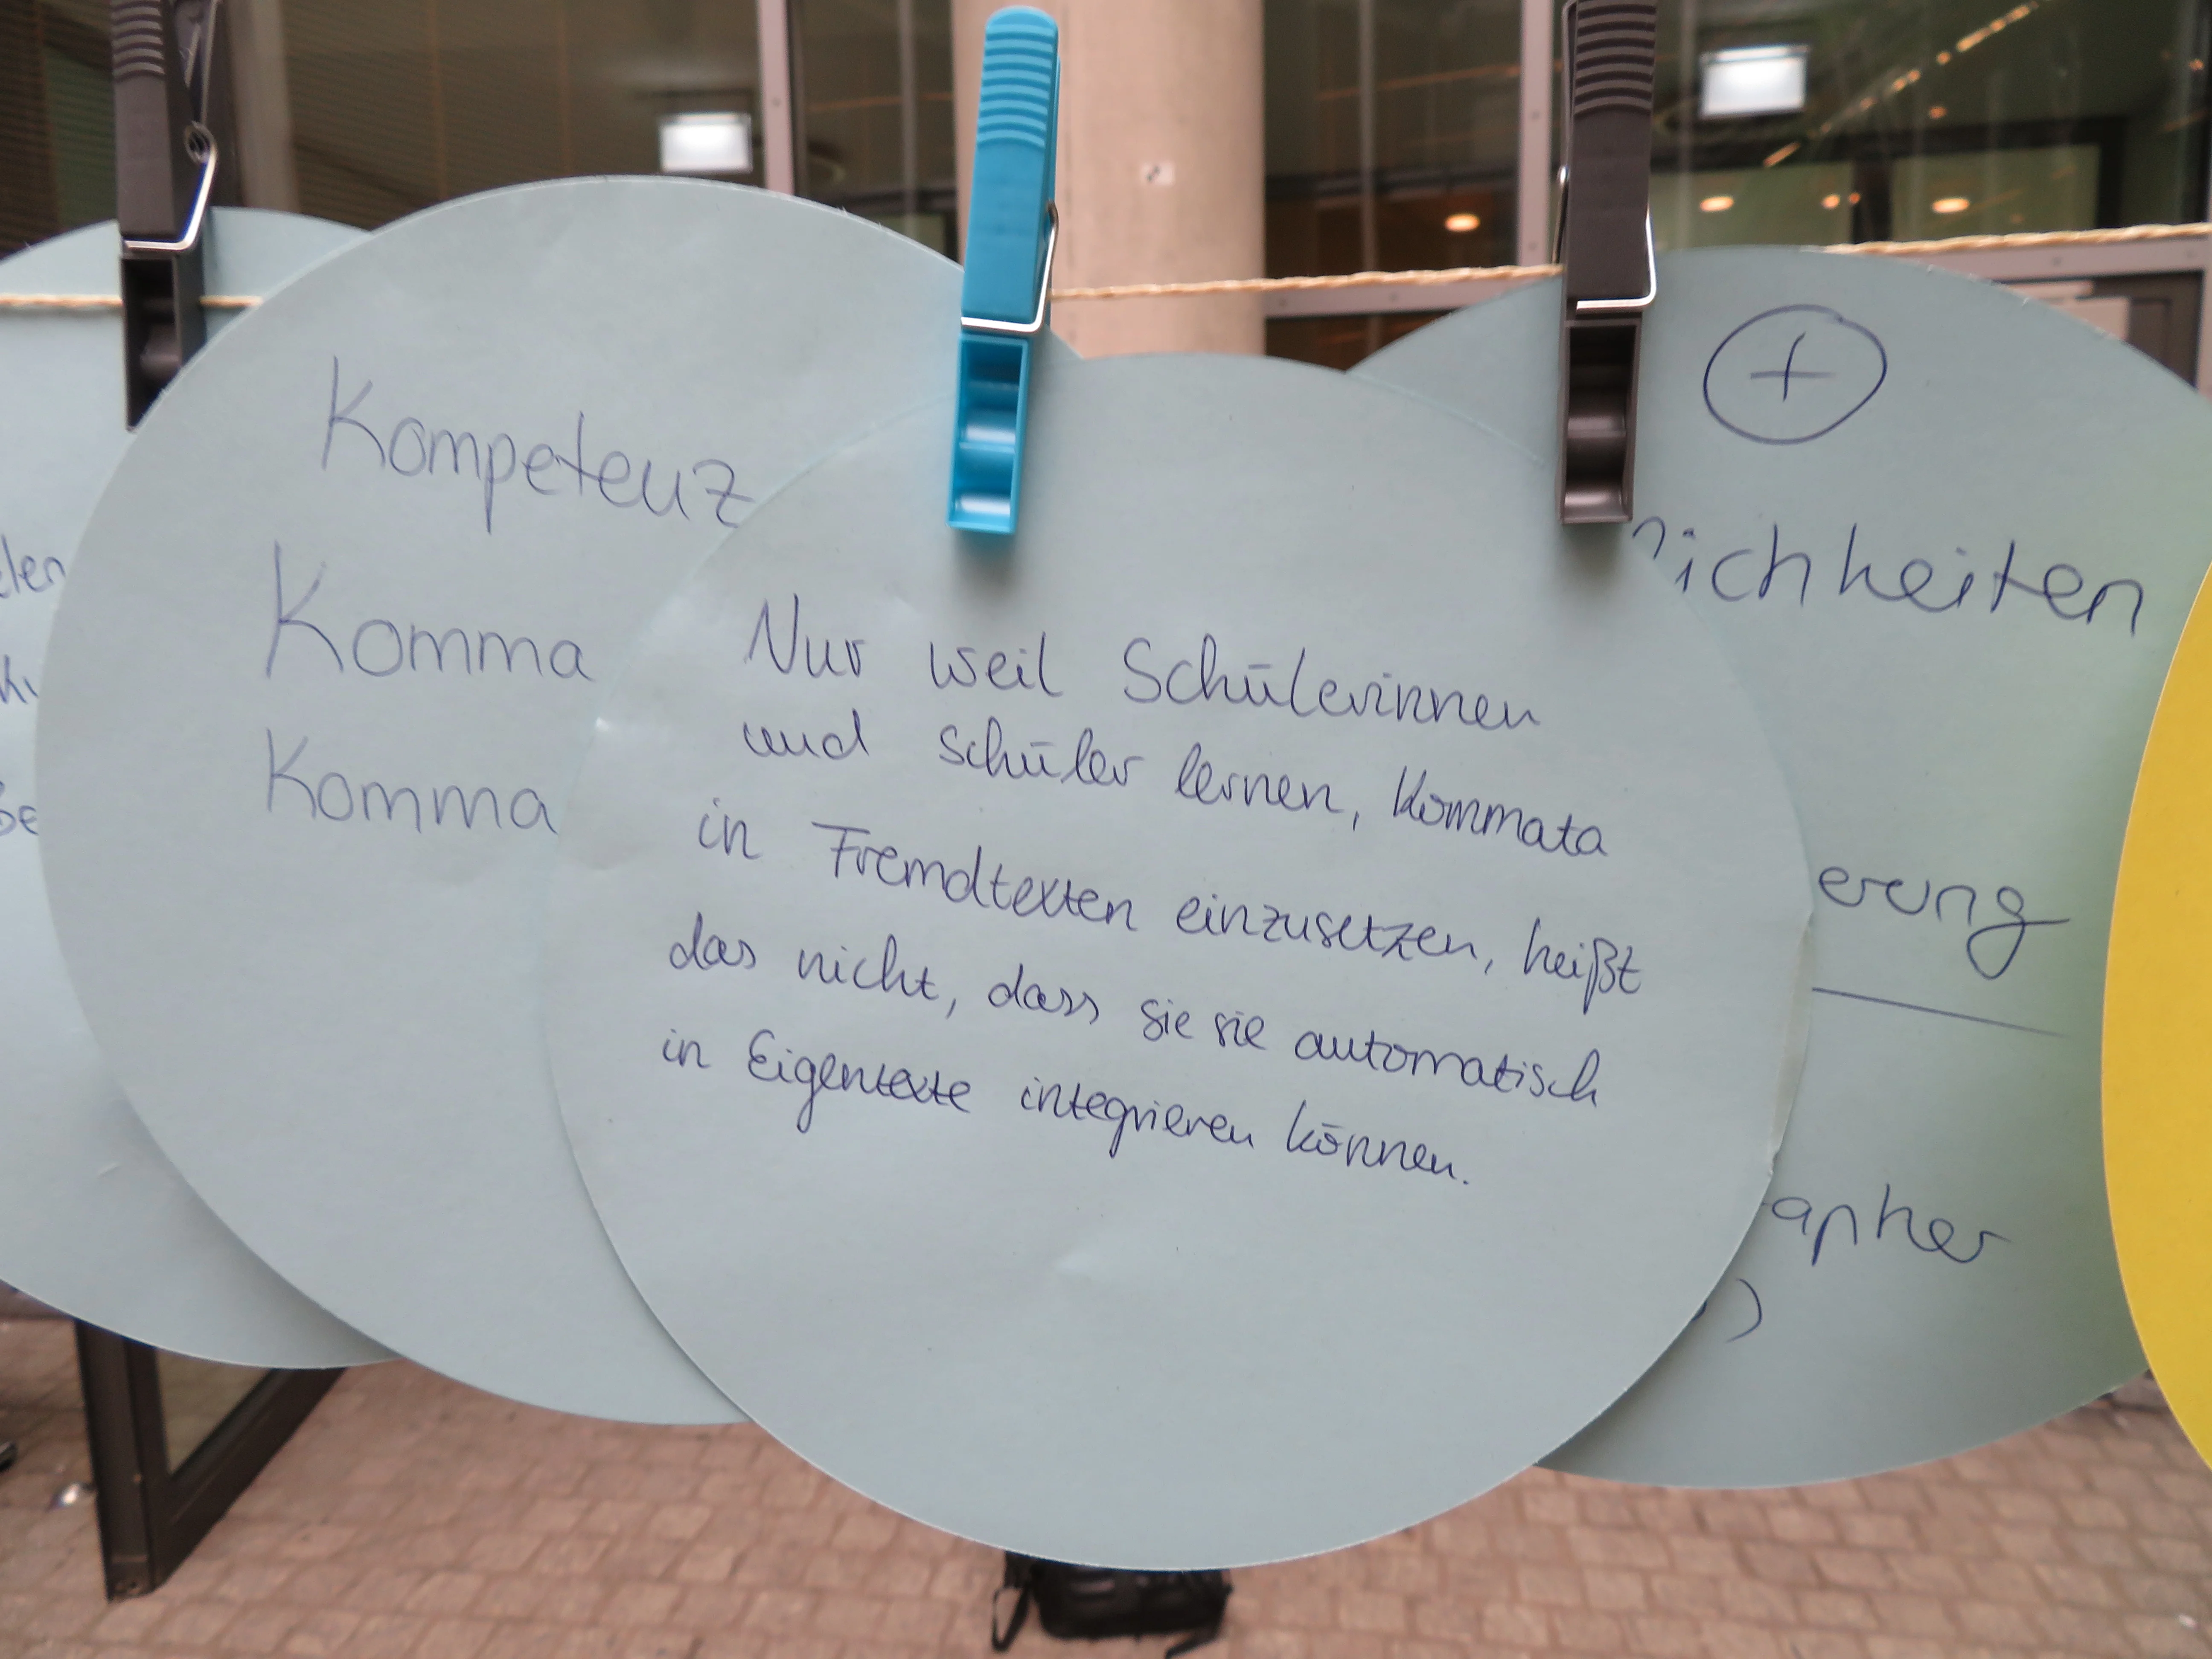 Kompetenz
Komma
Komma
Nur weil Schülerinnen
und Schüler lernen, Kommata
in Fremdtexten einzusetzen, heißt
das nicht, dass sie sie automatisch
in Eigentexte integrieren können.
+
lichkeiten
erung
apher
)